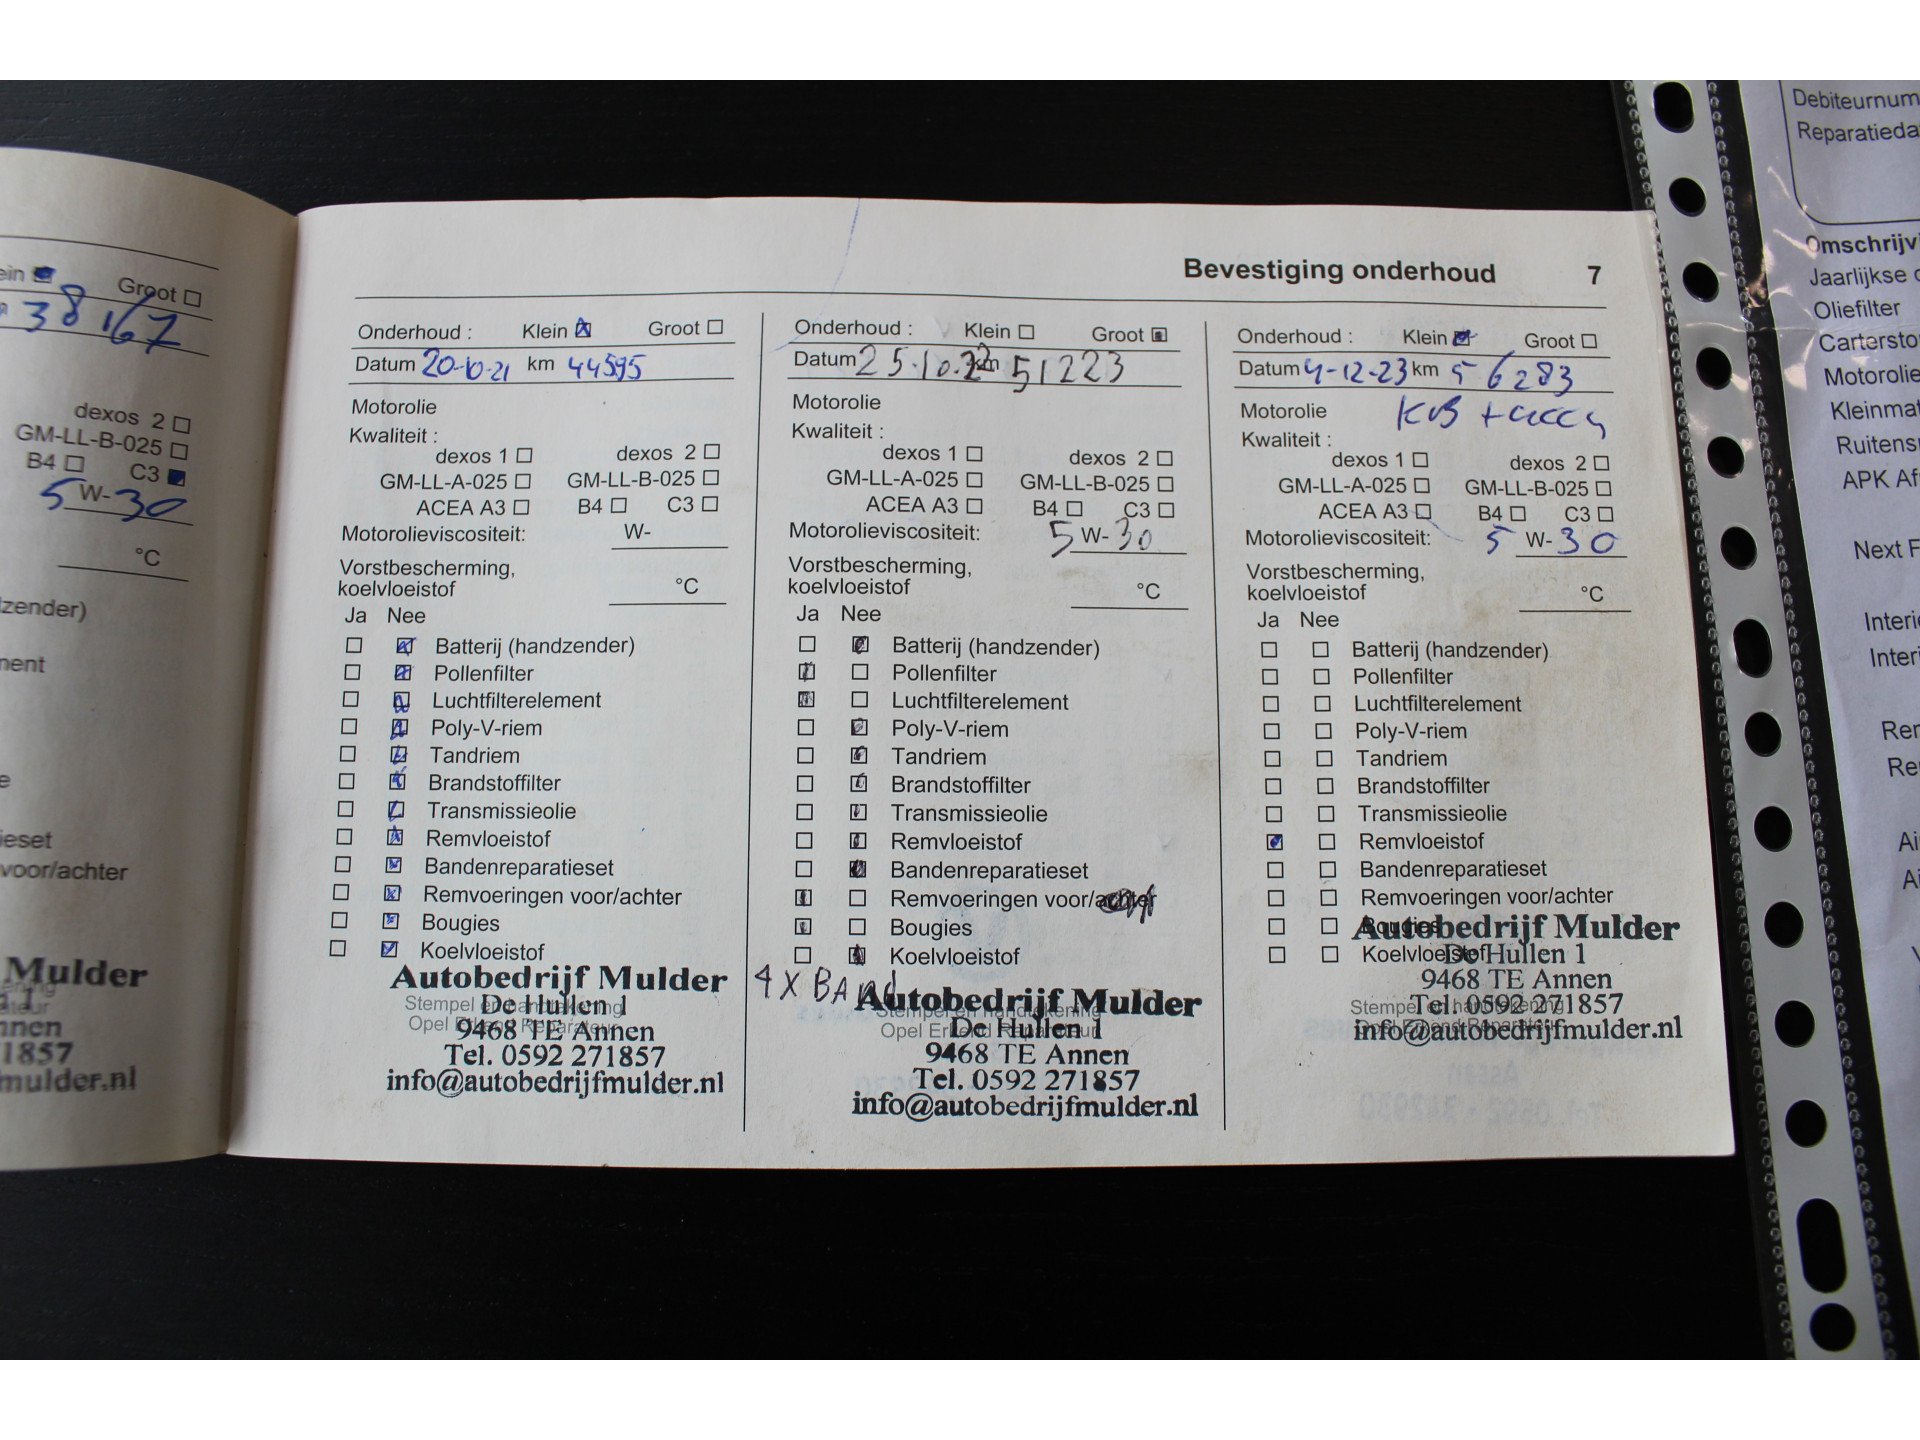 Klein Groot
38167
dexos 2
GM-LL-B-025
B4 C3
5 W-30
°C
Mulder
mulder.nl
Bevestiging onderhoud 7
Onderhoud : Klein Groot
Datum 20-10-21 km 44595
Motorolie
Kwaliteit :
dexos 1 dexos 2
GM-LL-A-025 GM-LL-B-025
ACEA A3 B4 C3
Motorolieviscositeit: W-
Vorstbescherming,
koelvloeistof °C
Ja Nee
Batterij (handzender)
Pollenfilter
Luchtfilterelement
Poly-V-riem
Tandriem
Brandstoffilter
Transmissieolie
Remvloeistof
Bandenreparatieset
Remvoeringen voor/achter
Bougies
Koelvloeistof
Autobedrijf Mulder
De Hullen 1
Stempel en handtekening
Opel Erkend Reparateur
9468 TE Annen
Tel. 0592 271857
info@autobedrijfmulder.nl
Onderhoud : Klein Groot
Datum 25.10.22 km 51223
Motorolie
Kwaliteit :
dexos 1 dexos 2
GM-LL-A-025 GM-LL-B-025
ACEA A3 B4 C3
Motorolieviscositeit: 5 W-30
Vorstbescherming,
koelvloeistof °C
Ja Nee
Batterij (handzender)
Pollenfilter
Luchtfilterelement
Poly-V-riem
Tandriem
Brandstoffilter
Transmissieolie
Remvloeistof
Bandenreparatieset
Remvoeringen voor/achter
Bougies
Koelvloeistof
4 X BAND
Autobedrijf Mulder
Stempel en handtekening
De Hullen 1
Opel Erkend Reparateur
9468 TE Annen
Tel. 0592 271857
info@autobedrijfmulder.nl
Onderhoud : Klein Groot
Datum 4-12-23 km 56283
Motorolie
Kwaliteit :
dexos 1 dexos 2
GM-LL-A-025 GM-LL-B-025
ACEA A3 B4 C3
Motorolieviscositeit: 5 W-30
Vorstbescherming,
koelvloeistof °C
Ja Nee
Batterij (handzender)
Pollenfilter
Luchtfilterelement
Poly-V-riem
Tandriem
Brandstoffilter
Transmissieolie
Remvloeistof
Bandenreparatieset
Remvoeringen voor/achter
Bougies
Autobedrijf Mulder
Koelvloeistof
De Hullen 1
9468 TE Annen
Stempel en handtekening
Tel. 0592 271857
Opel Erkend Reparateur
info@autobedrijfmulder.nl
Debiteurnum
Reparatieda
Omschrijvi
Jaarlijkse
Oliefilter
Carterstop
Motorolie
Kleinmat
Ruitensp
APK Af
Next F
Interi
Interi
Rem
Re
Ai